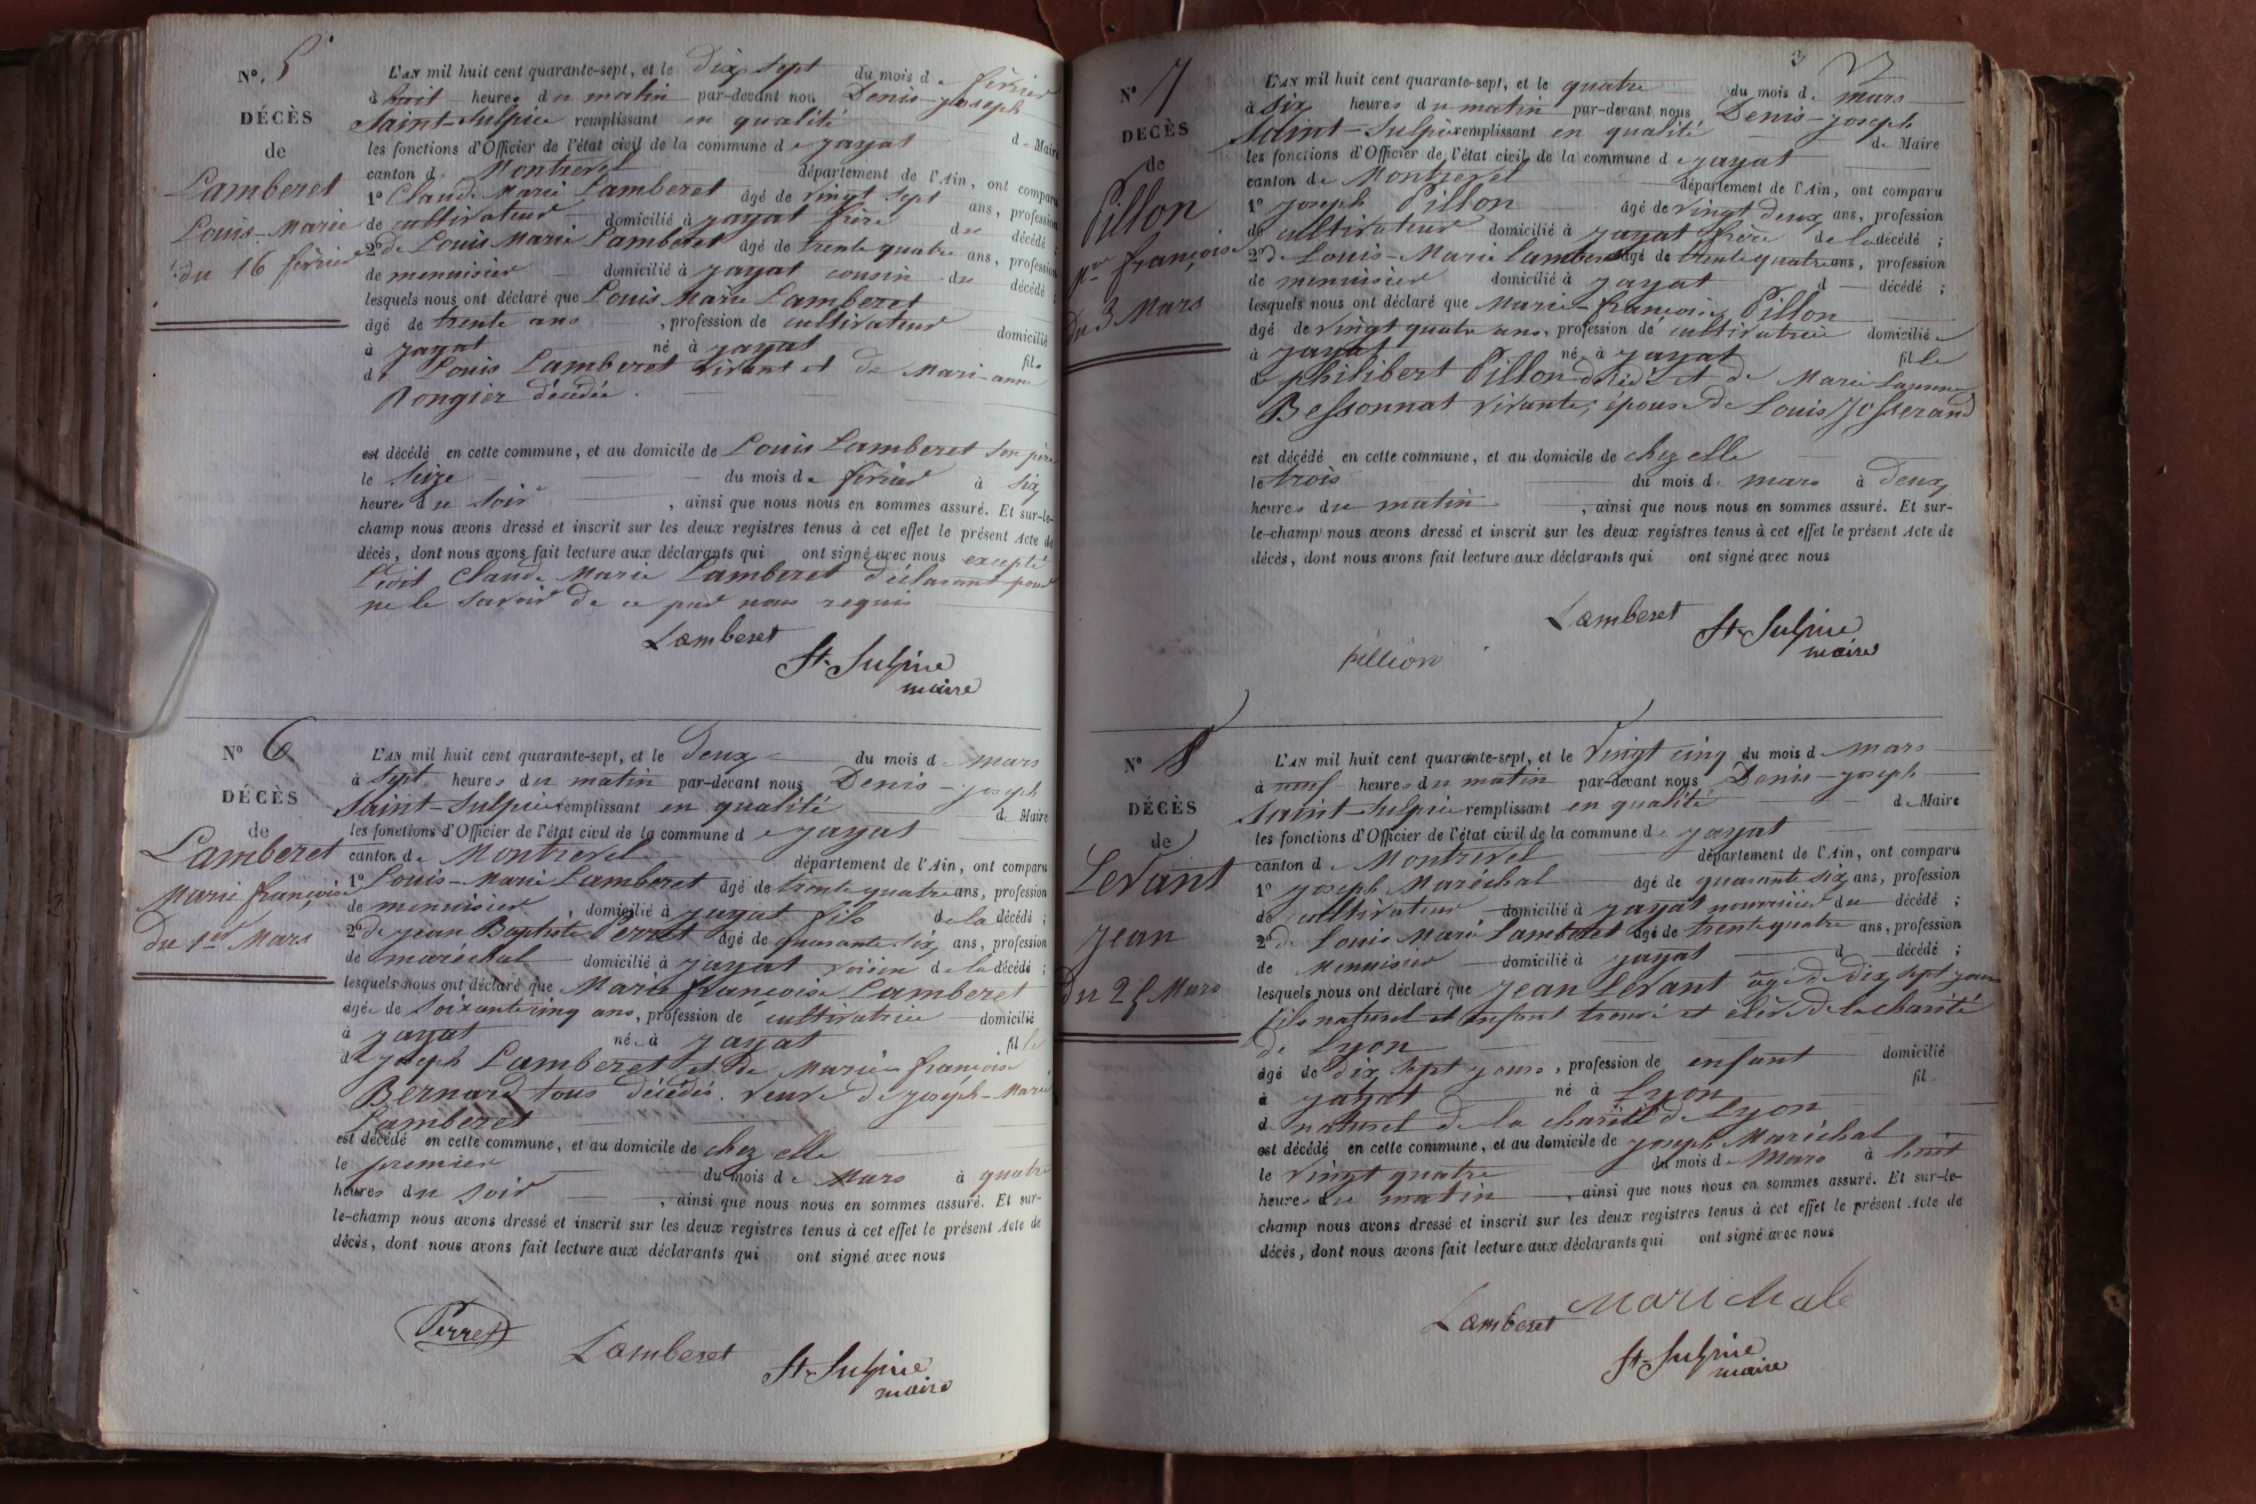 N°. 5
DÉCÈS
de
Lamberet
Louis-Marie
du 16 février
L'AN mil huit cent quarante-sept, et le dix sept du mois de février
à huit heures du matin par-devant nou Denis-joseph
Saint-Sulpice remplissant en qualité de Maire
les fonctions d'Officier de l'état civil de la commune de jayat
canton de Montrevel département de l'Ain, ont comparu
1° Claude Marie Lamberet âgé de vingt sept ans, profession
de cultivateur domicilié à jayat frère du décédé ;
2° de Louis Marie Lamberet âgé de trente quatre ans, profession
de menuisier domicilié à jayat cousin du décédé ;
lesquels nous ont déclaré que Louis Marie Lamberet
âgé de trente ans, profession de cultivateur domicilié
à jayat né à jayat fils
de Louis Lamberet vivant et de Marie-anne
Rongier décédée.
est décédé en cette commune, et au domicile de Louis Lamberet son père
le seize du mois de février à six
heures du soir, ainsi que nous nous en sommes assuré. Et sur-le-
champ nous avons dressé et inscrit sur les deux registres tenus à cet effet le présent Acte de
décès, dont nous avons fait lecture aux déclarants qui ont signé avec nous excepté
Ledit Claude Marie Lamberet déclarant pour
ne le savoir de ce par nous requis
Lamberet
St Sulpice
maire
N° 6
DÉCÈS
de
Lamberet
Marie françoise
Du 1er Mars
L'AN mil huit cent quarante-sept, et le deux du mois de mars
à sept heures du matin par-devant nous Denis-joseph
Saint-Sulpice remplissant en qualité de Maire
les fonctions d'Officier de l'état civil de la commune de jayat
canton de Montrevel département de l'Ain, ont comparu
1° Louis-Marie Lamberet âgé de trente quatre ans, profession
de menuisier, domicilié à jayat fils de la décédé ;
2° de jean Baptiste Perret âgé de quarante six ans, profession
de maréchal domicilié à jayat voisin de la décédé ;
lesquels nous ont déclaré que Marie françoise Lamberet
âgée de soixante cinq ans, profession de cultivatrice domicilié
à jayat née à jayat fille
de joseph Lamberet et de Marie françoise
Bernard tous décédés. veuve de joseph-Marie
Lamberet
est décédé en cette commune, et au domicile de chez elle
le premier du mois de Mars à quatre
heures du soir, ainsi que nous nous en sommes assuré. Et sur-
le-champ nous avons dressé et inscrit sur les deux registres tenus à cet effet le présent Acte de
décès, dont nous avons fait lecture aux déclarants qui ont signé avec nous
Perret
Lamberet
St Sulpice
maire
3
N° 7
DÉCÈS
de
Pillon
Mie françoise
Du 3 Mars
L'AN mil huit cent quarante-sept, et le quatre du mois de mars
à six heures du matin par-devant nous Denis-joseph
Saint-Sulpice remplissant en qualité de Maire
les fonctions d'Officier de l'état civil de la commune de jayat
canton de Montrevel département de l'Ain, ont comparu
1° joseph Pillon âgé de vingt deux ans, profession
de cultivateur domicilié à jayat frère de la décédé ;
2° de Louis-Marie Lamberet âgé de trente quatre ans, profession
de menuisier domicilié à jayat d décédé ;
lesquels nous ont déclaré que Marie-françoise Pillon
âgé de vingt quatre ans, profession de cultivatrice domicilié
à jayat née à jayat fille
de philibert Pillon décédé et de Marie Laurence
Bessonnat vivante, épouse de Louis Josserand
est décédé en cette commune, et au domicile de chez elle
le trois du mois de mars à deux
heures du matin, ainsi que nous nous en sommes assuré. Et sur-
le-champ nous avons dressé et inscrit sur les deux registres tenus à cet effet le présent Acte de
décès, dont nous avons fait lecture aux déclarants qui ont signé avec nous
Lamberet
St Sulpice
maire
pillion
N° 8
DÉCÈS
de
Levant
jean
Du 25 Mars
L'AN mil huit cent quarante-sept, et le vingt cinq du mois de mars
à neuf heures du matin par-devant nous Denis-joseph
Saint-Sulpice remplissant en qualité de Maire
les fonctions d'Officier de l'état civil de la commune de jayat
canton de Montrevel département de l'Ain, ont comparu
1° joseph Maréchal âgé de quarante six ans, profession
de cultivateur domicilié à jayat nourricier du décédé ;
2° de Louis Marie Lamberet âgé de trente quatre ans, profession
de Menuisier domicilié à jayat d décédé ;
lesquels nous ont déclaré que jean Levant âgé de dix sept jours
fils naturel et enfant trouvé et élève de la charité
de Lyon
âgé de dix sept jours, profession de enfant domicilié
à jayat né à Lyon fil
d naturel de la charité de Lyon
est décédé en cette commune, et au domicile de joseph Maréchal
le vingt quatre du mois de Mars à huit
heures du matin, ainsi que nous nous en sommes assuré. Et sur-le-
champ nous avons dressé et inscrit sur les deux registres tenus à cet effet le présent Acte de
décès, dont nous avons fait lecture aux déclarants qui ont signé avec nous
Lamberet Marichale
St Sulpice
maire